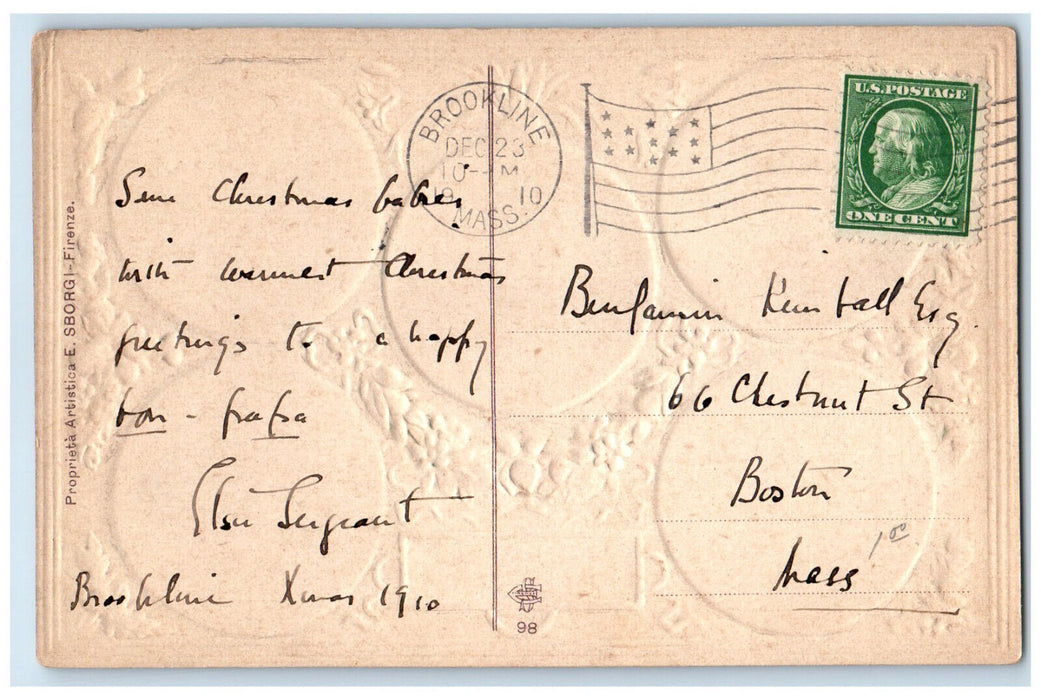 Proprietà Artistica E. SBORGI - Firenze.
Some Christmas babies
with warmest Christmas
greetings to a happy
bon - papa
Elsie Sergeant
Brookline Xmas 1910
BROOKLINE
DEC 23
10 - M
19 10
MASS.
U.S. POSTAGE
ONE CENT
Benjamin Kimball Esq.
66 Chestnut St
Boston
Mass
98